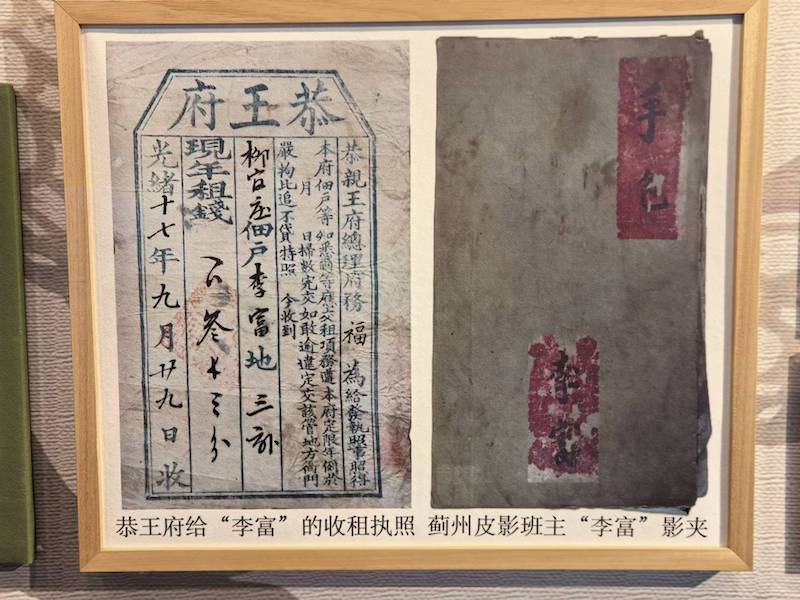 恭王府
恭親王府總理府務 福 為給發執照事照得
本府佃戶等知悉爾等應交租項務遵本府定限年例於
月 日掃數完交如敢逾違定交該管地方衙門
嚴拘比追不貸特照 今收到
柳官庄佃戶李富地 三畝
現年租錢
光緒十七年九月廿九日收
手包
李富
恭王府给“李富”的收租执照
蓟州皮影班主“李富”影夹